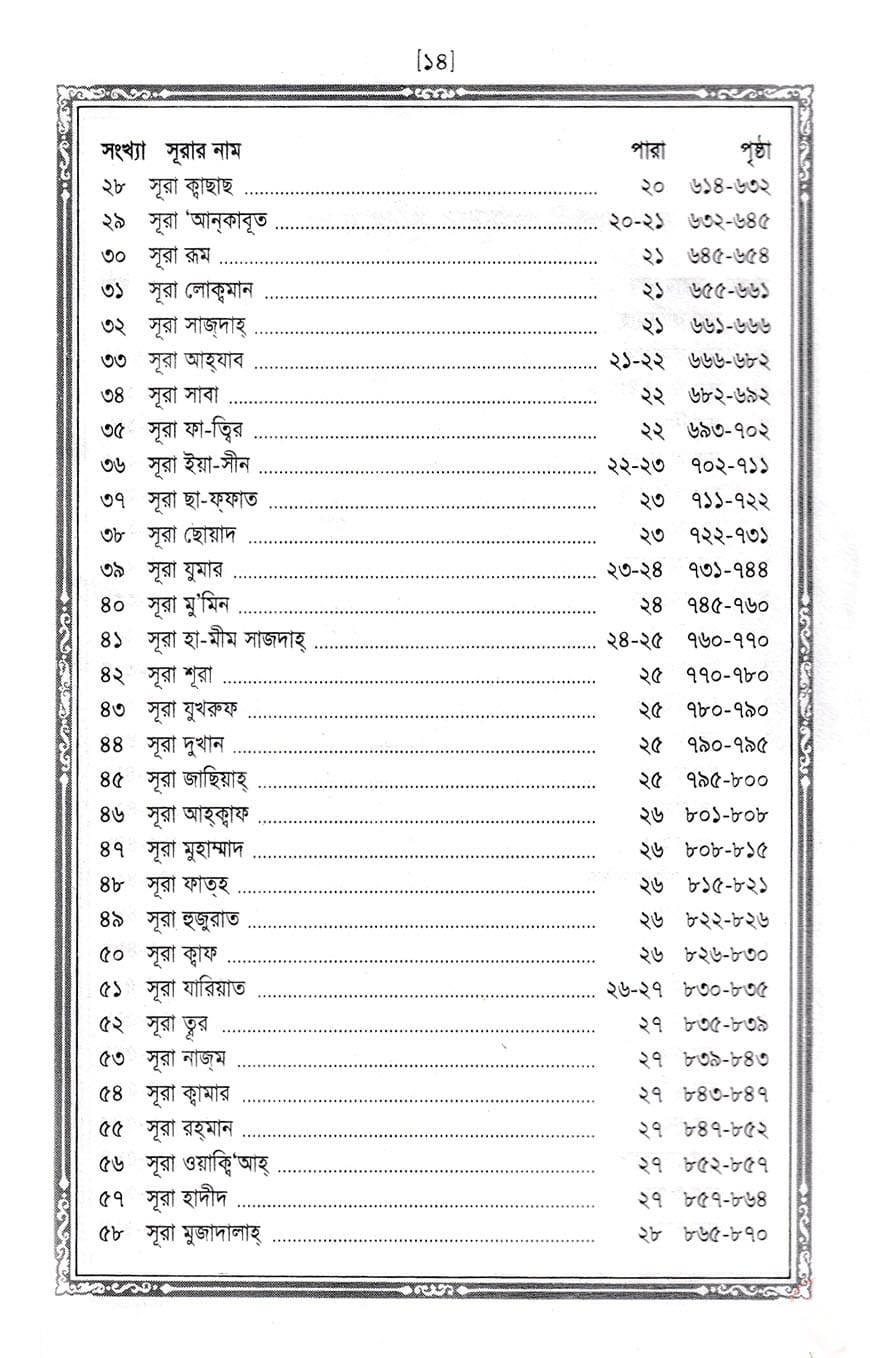 [১৪]
সংখ্যা সূরার নাম পারা পৃষ্ঠা
২৮ সূরা ক্বাছাছ ........ ২০ ৬১৪-৬৩২
২৯ সূরা ‘আন্‌কাবূত ........ ২০-২১ ৬৩২-৬৪৫
৩০ সূরা রূম ........ ২১ ৬৪৫-৬৫৪
৩১ সূরা লোক্বমান ........ ২১ ৬৫৫-৬৬১
৩২ সূরা সাজ্‌দাহ্ ........ ২১ ৬৬১-৬৬৬
৩৩ সূরা আহ্‌যাব ........ ২১-২২ ৬৬৬-৬৮২
৩৪ সূরা সাবা ........ ২২ ৬৮২-৬৯২
৩৫ সূরা ফা-ত্বির ........ ২২ ৬৯৩-৭০২
৩৬ সূরা ইয়া-সীন ........ ২২-২৩ ৭০২-৭১১
৩৭ সূরা ছা-ফ্‌ফাত ........ ২৩ ৭১১-৭২২
৩৮ সূরা ছোয়াদ ........ ২৩ ৭২২-৭৩১
৩৯ সূরা যুমার ........ ২৩-২৪ ৭৩১-৭৪৪
৪০ সূরা মু’মিন ........ ২৪ ৭৪৫-৭৬০
৪১ সূরা হা-মীম সাজদাহ্ ........ ২৪-২৫ ৭৬০-৭৭০
৪২ সূরা শূরা ........ ২৫ ৭৭০-৭৮০
৪৩ সূরা যুখরুফ ........ ২৫ ৭৮০-৭৯০
৪৪ সূরা দুখান ........ ২৫ ৭৯০-৭৯৫
৪৫ সূরা জাছিয়াহ্ ........ ২৫ ৭৯৫-৮০০
৪৬ সূরা আহ্‌ক্বাফ ........ ২৬ ৮০১-৮০৮
৪৭ সূরা মুহাম্মাদ ........ ২৬ ৮০৮-৮১৫
৪৮ সূরা ফাত্‌হ ........ ২৬ ৮১৫-৮২১
৪৯ সূরা হুজুরাত ........ ২৬ ৮২২-৮২৬
৫০ সূরা ক্বাফ ........ ২৬ ৮২৬-৮৩০
৫১ সূরা যারিয়াত ........ ২৬-২৭ ৮৩০-৮৩৫
৫২ সূরা ত্বূর ........ ২৭ ৮৩৫-৮৩৯
৫৩ সূরা নাজ্‌ম ........ ২৭ ৮৩৯-৮৪৩
৫৪ সূরা ক্বামার ........ ২৭ ৮৪৩-৮৪৭
৫৫ সূরা রহ্‌মান ........ ২৭ ৮৪৭-৮৫২
৫৬ সূরা ওয়াক্বি‘আহ্ ........ ২৭ ৮৫২-৮৫৭
৫৭ সূরা হাদীদ ........ ২৭ ৮৫৭-৮৬৪
৫৮ সূরা মুজাদালাহ্ ........ ২৮ ৮৬৫-৮৭০